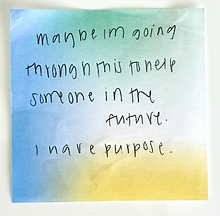 maybe im going
through this to help
someone in the
future.
I have purpose.